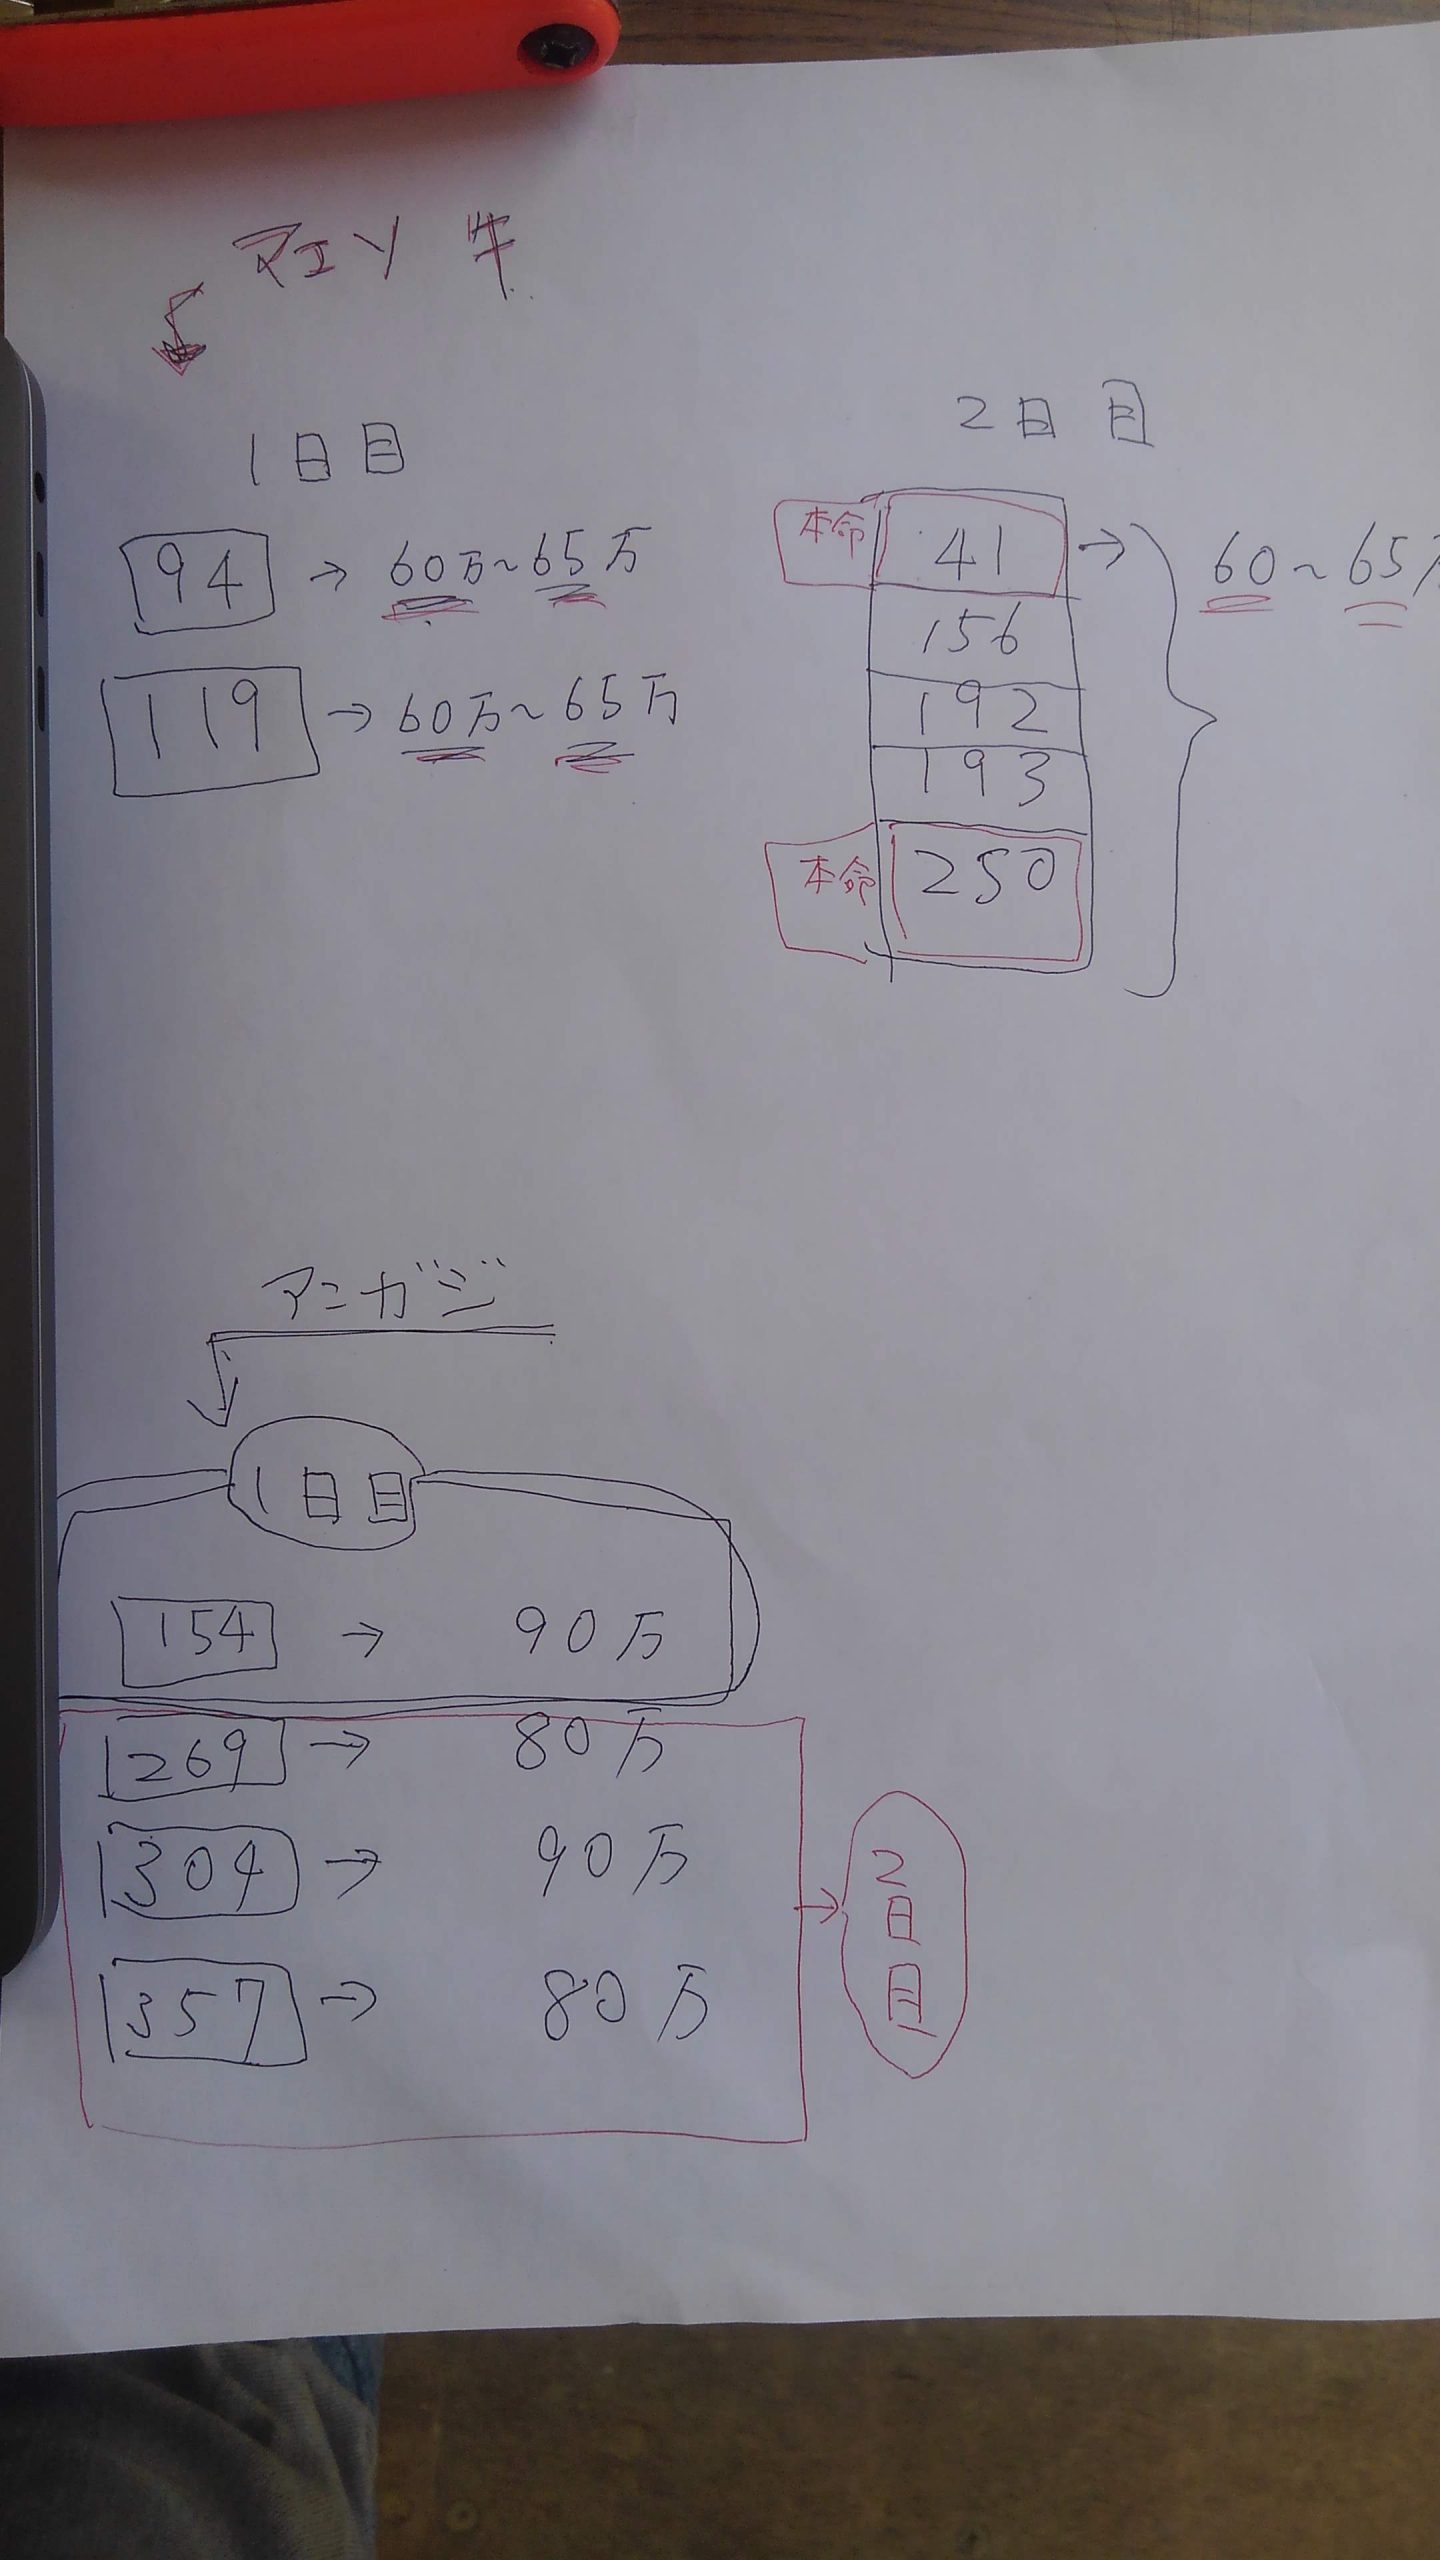 マエソ牛
1日目
94 → 60万~65万
119 → 60万~65万
2日目
本命 41 → 60~65万
156
192
193
本命 250
アニガジ
1日目
154 → 90万
269 → 80万
304 → 90万
357 → 80万
2日目